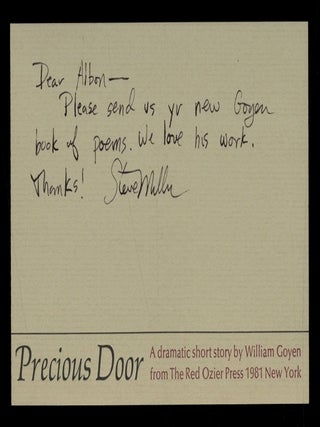 Dear Albon—
Please send us yr new Goyen
book of poems. We love his work.
Thanks! Steve Miller
Precious Door
A dramatic short story by William Goyen
from The Red Ozier Press 1981 New York